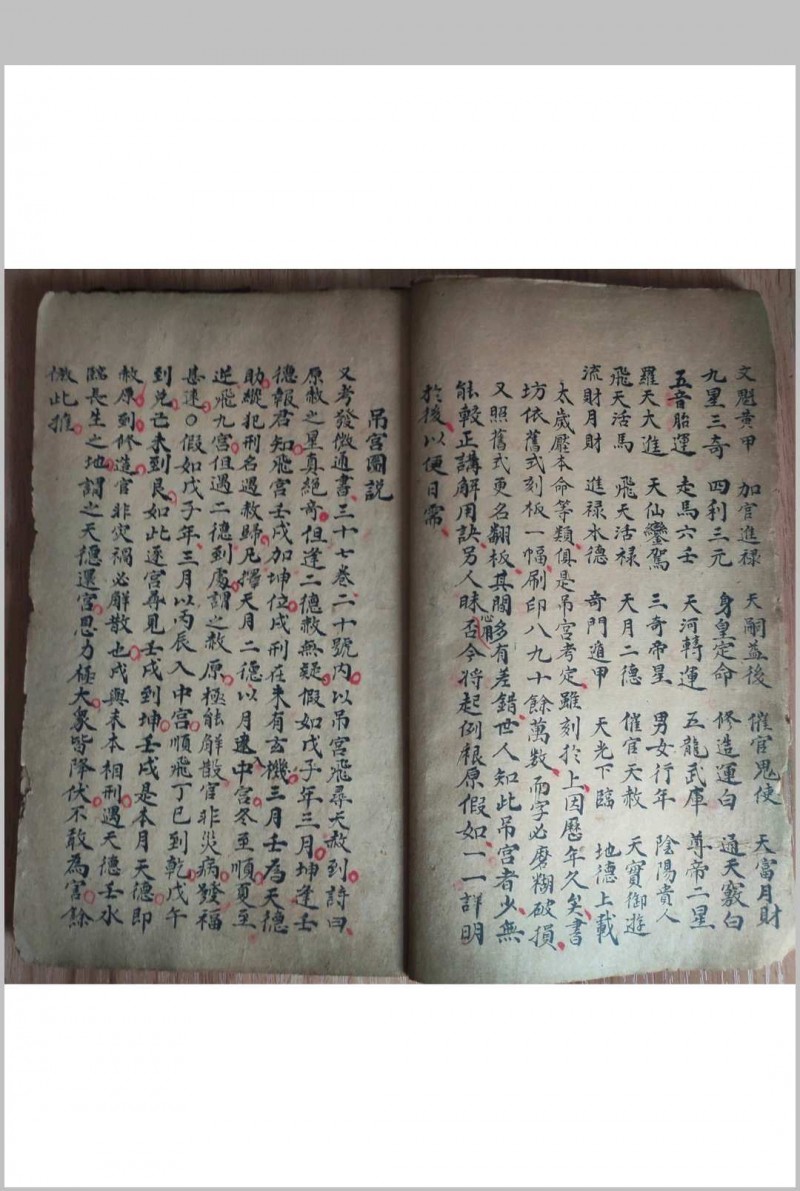 文魁黄甲 加官進禄 天嗣益後 催官鬼使 天富月財
九星三奇 四利三元 身皇定命 修造運白 通天竅白
五音胎運 走馬六壬 天河轉運 五龍武庫 尊帝二星
羅天大進 天仙鑾駕 三奇帝星 男女行年 陰陽貴人
飛天活馬 飛天活禄 天月二德 催官天赦 天寶御遊
流財月財 進禄水德 奇門遁甲 天光下臨 地德上載
太歲壓本命等類俱是吊宮考定雖刻於上因歷年久矣書
坊依舊式刻板一幅刷印八九十餘萬數而字必磨糊破損
又照舊式更名翻板其間多有差錯世人知此吊宮者少無
能較正講解用訣另人昧否今將起例根原假如一一詳明
於後以便日需
吊宮圖説
又考發微通書三十七卷二十號内以吊宮飛尋天赦到詩曰
原赦之星真絕奇但逢二德赦無疑假如戊子年三月坤逢壬
德報君知飛宮壬戌加坤位戌刑在未有玄機三月壬為天德
助縱犯刑名遇赦歸凡擇天月二德以月建入中宮冬至順夏至
逆飛九宮但遇二德到處謂之赦原極能解散官非災病發福
甚速〇假如戊子年三月以丙辰入中宮順飛丁巳到乾戊午
到兑己未到艮如此逐宮尋見壬戌到坤壬戌是本月天德即
赦原到修造官非災禍必解散也戌與未本相刑遇天德壬水
臨長生之地謂之天德還宮恩力極大衆皆降伏不敢為害餘
倣此推